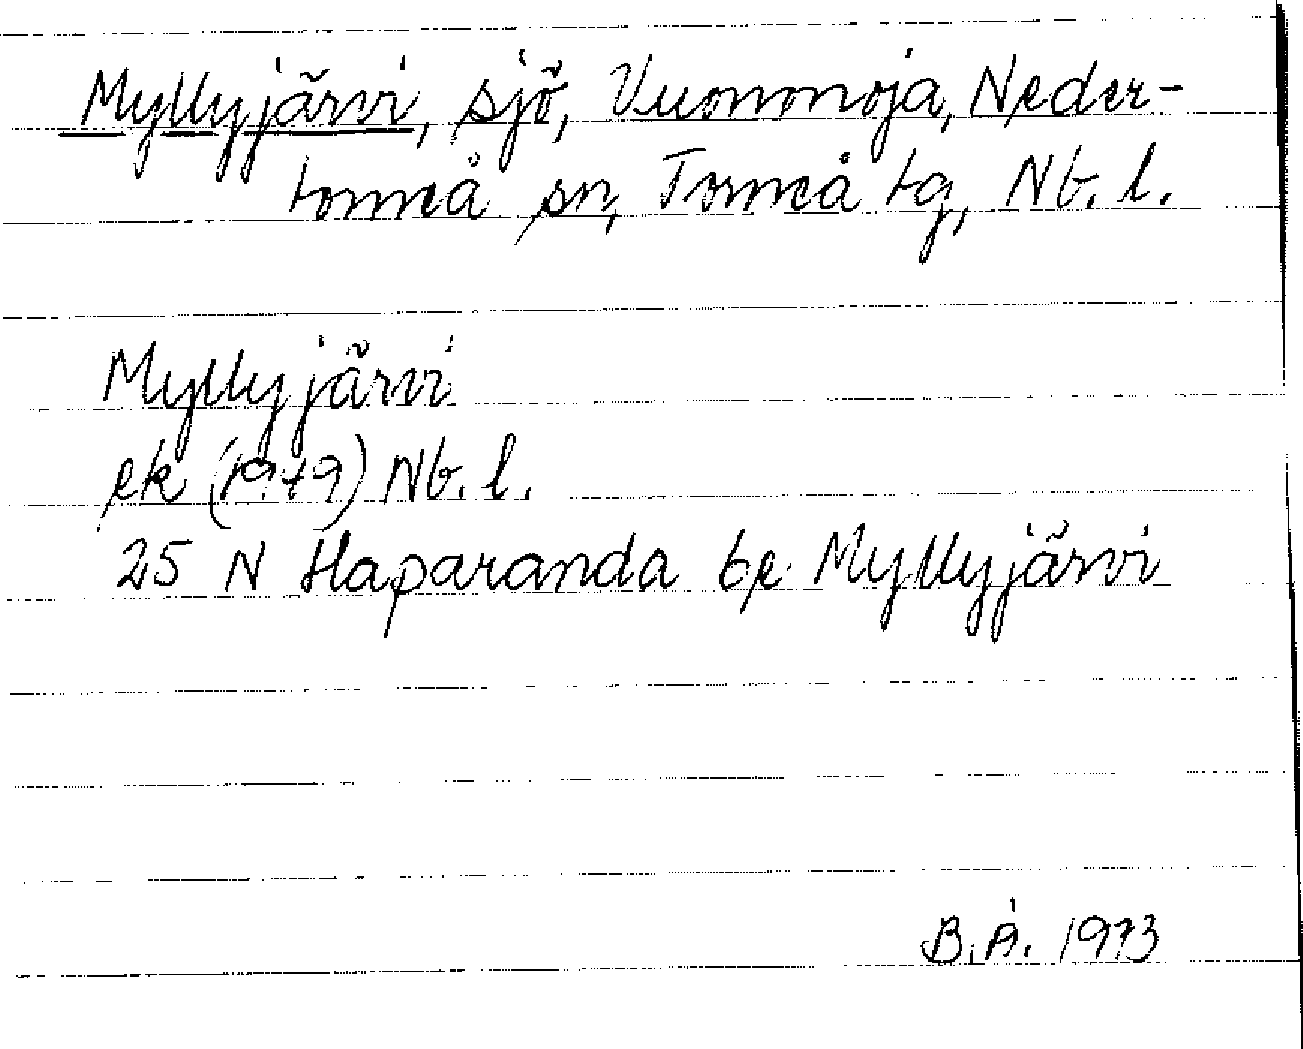 Myllyjärvi, sjö, Vuonnoja, Neder-
torneå sn, Torneå tg, Nb. l.
Myllyjärvi
ek (1979) Nb. l.
25 N Haparanda be Myllyjärvi
B.Å. 1973